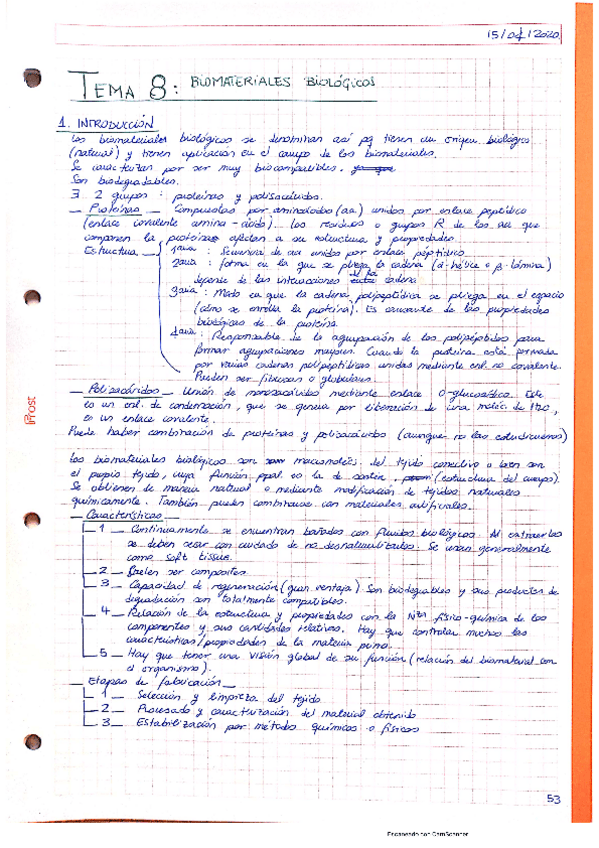 15/04/2020
TEMA 8: BIOMATERIALES BIOLÓGICOS
1. INTRODUCCIÓN
Los biomateriales biológicos se denominan así pq tienen un origen biológico
(natural) y tienen aplicación en el campo de los biomateriales.
Se caracterizan por ser muy biocompatibles.
Son biodegradables.
∃ 2 grupos: proteínas y polisacáridos.
— Proteínas — Compuestas por aminoácidos (aa) unidos por enlace peptídico
(enlace covalente amino-ácido). Los residuos o grupos R de los aa que
componen la proteína afectan a su estructura y propiedades.
Estructura — 1aria: Secuencia de aa unidos por enlace peptídico.
2aria: forma en la que se pliega la cadena (α-hélice o β-lámina)
depende de las interacciones de la cadena
3aria: Modo en que la cadena polipeptídica se pliega en el espacio
(cómo se enrolla la proteína). Es causante de las propiedades
biológicas de la proteína.
4aria: Responsable de la agrupación de los polipéptidos para
formar agrupaciones mayores. Cuando la proteína está formada
por varias cadenas polipeptídicas unidas mediante enl. no covalente.
Pueden ser fibrosas o globulares.
— Polisacáridos — Unión de monosacáridos mediante enlace O-glucosídico. Este
es un enl. de condensación, que se genera por liberación de una moléc de H2O,
es un enlace covalente.
Puede haber combinación de proteínas y polisacáridos (aunque no las estudiaremos)
Los biomateriales biológicos son macromoléc. del tejido conectivo o bien son
el propio tejido, cuya función ppal. es la de sostén, (estructura del cuerpo).
Se obtienen de manera natural o mediante modificación de tejidos naturales
químicamente. También pueden combinarse con materiales artificiales.
— Características —
1 — Continuamente se encuentran bañados con fluidos biológicos. Al extraerlos
se deben secar con cuidado de no desnaturalizarlos. Se usan generalmente
como soft tissue.
2 — Suelen ser composites
3 — Capacidad de regeneración (gran ventaja). Son biodegradables y sus productos de
degradación son totalmente compatibles.
4 — Relación de la estructura y propiedades con la físico-química de los
componentes y sus cantidades relativas. Hay que controlar mucho las
características/propiedades de la materia prima.
5 — Hay que tener una visión global de su función (relación del biomaterial con
el organismo).
— Etapas de fabricación —
1 — Selección y limpieza del tejido
2 — Procesado y caracterización del material obtenido
3 — Estabilización por métodos químicos o físicos
Prost
53
Escaneado con CamScanner